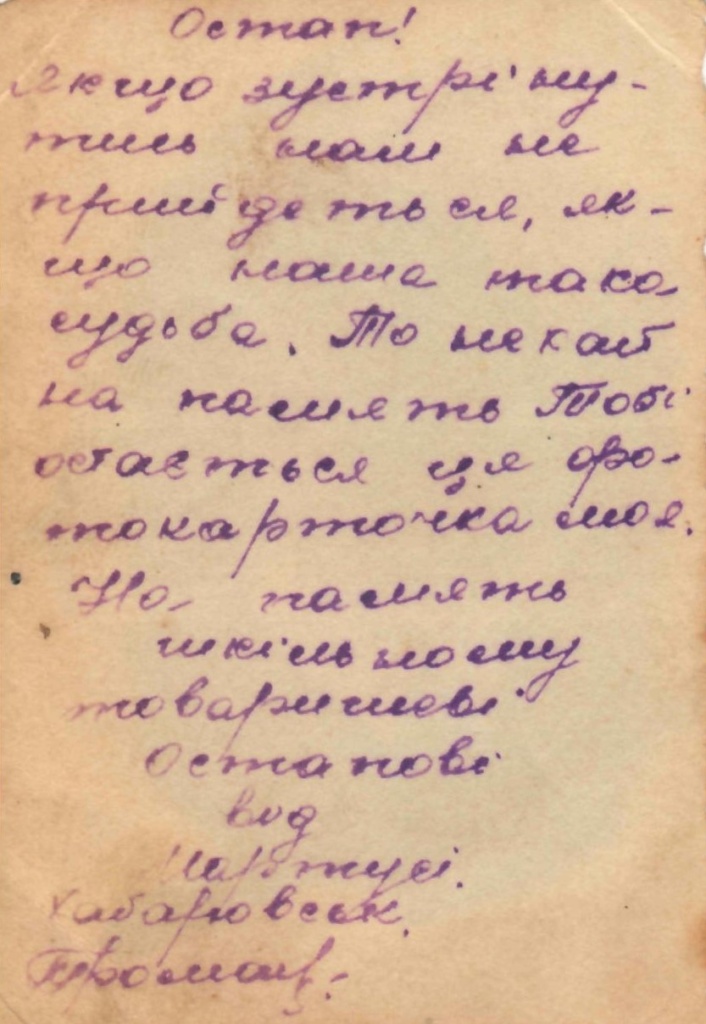 Остап!
Якщо зустріну-
тись нам не
прийдеться, як-
що наша така
судьба. То нехай
на память Тобі
остається ця фо-
токарточка моя.
На память
шкільному
товаришеві
Остапові
від
Хабаровськ.